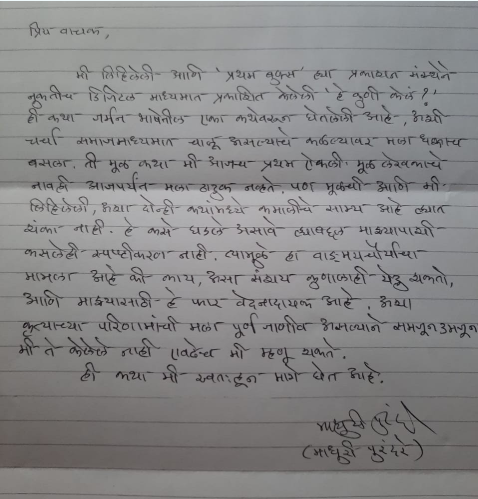 प्रिय वाचक,
मी लिहिलेली आणि 'प्रथम बुक्स' ह्या प्रकाशन संस्थेने
नुकतीच डिजिटल माध्यमात प्रकाशित केलेली 'हे कुणी केलं?'
ही कथा जर्मन भाषेतील एका कथेवरून घेतलेली आहे, अशी
चर्चा समाजमाध्यमात चालू असल्याचे कळल्यावर मला धक्काच
बसला. ती मूळ कथा मी आजच प्रथम ऐकली. मूळ लेखकाचे
नावही आजपर्यंत मला ठाऊक नव्हते. पण मूळच्या आणि मी
लिहिलेली, अशा दोन्ही कथांमध्ये कमालीचे साम्य आहे ह्यात
शंका नाही. हे कसे घडले असावे ह्याबद्दल माझ्यापाशी
कसलेही स्पष्टीकरण नाही. त्यामुळे हा वाङ्मयचौर्याचा
मामला आहे की काय, असा संशय कुणालाही येऊ शकतो,
आणि माझ्यासाठी हे फार वेदनादायक आहे. अशा
कृत्याच्या परिणामांची मला पूर्ण जाणीव असल्याने समजून उमजून
मी ते केलेले नाही एवढेच मी म्हणू शकते.
ही कथा मी स्वतःहून मागे घेत आहे.
माधुरी पुरंदरे
(माधुरी पुरंदरे)